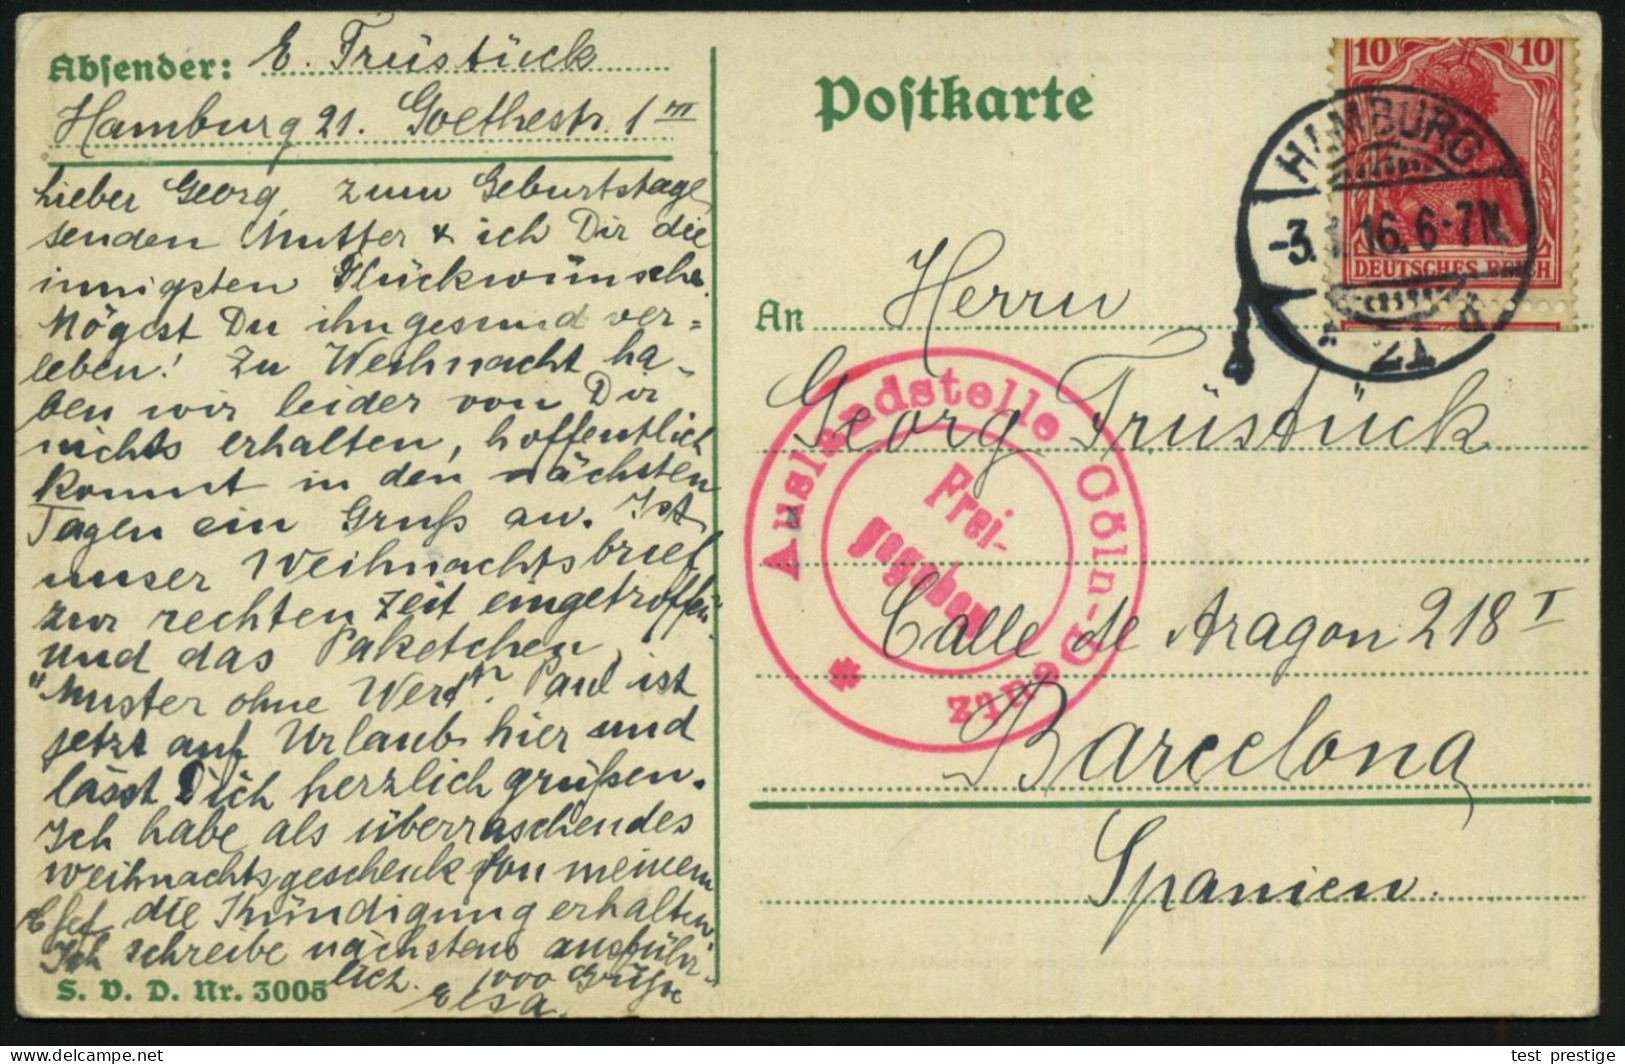 Absender: E. Früstück
Hamburg 21. Goethestr. 1 III
Lieber Georg, zum Geburtstage
senden Mutter & ich Dir die
innigsten Glückwünsche.
Mögest Du ihn gesund ver=
leben! Zu Weihnacht ha-
ben wir leider von Dir
nichts erhalten, hoffentlich
kommt in den nächsten
Tagen ein Gruß an. Ist
unser Weihnachtsbrief
zur rechten Zeit eingetroffen
und das Paketchen
"Muster ohne Wert"? Paul ist
jetzt auf Urlaub hier und
lässt Dich herzlich grüßen.
Ich habe als überraschendes
Weihnachtsgeschenk von meinem
Chef die Kündigung erhalten.
Ich schreibe nächstens ausführ-
lich. 1000 Grüße
Elsa.
S. V. D. Nr. 3005
Postkarte
10 10
DEUTSCHES REICH
HAMBURG
-3. 1. 16. 6-7N.
* 21 d
An Herrn
Georg Früstück
Calle de Aragon 218 I
Barcelona
Spanien.
Auslandstelle Cöln-Deutz *
Frei-
gegeben
test_prestige